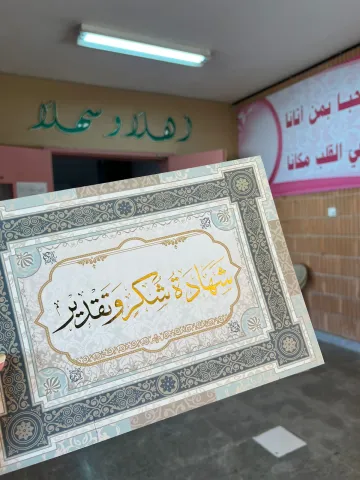 أهلا و سهلا
حبا بمن أتانا
ي القلب مكانا
شهادة شكر وتقدير